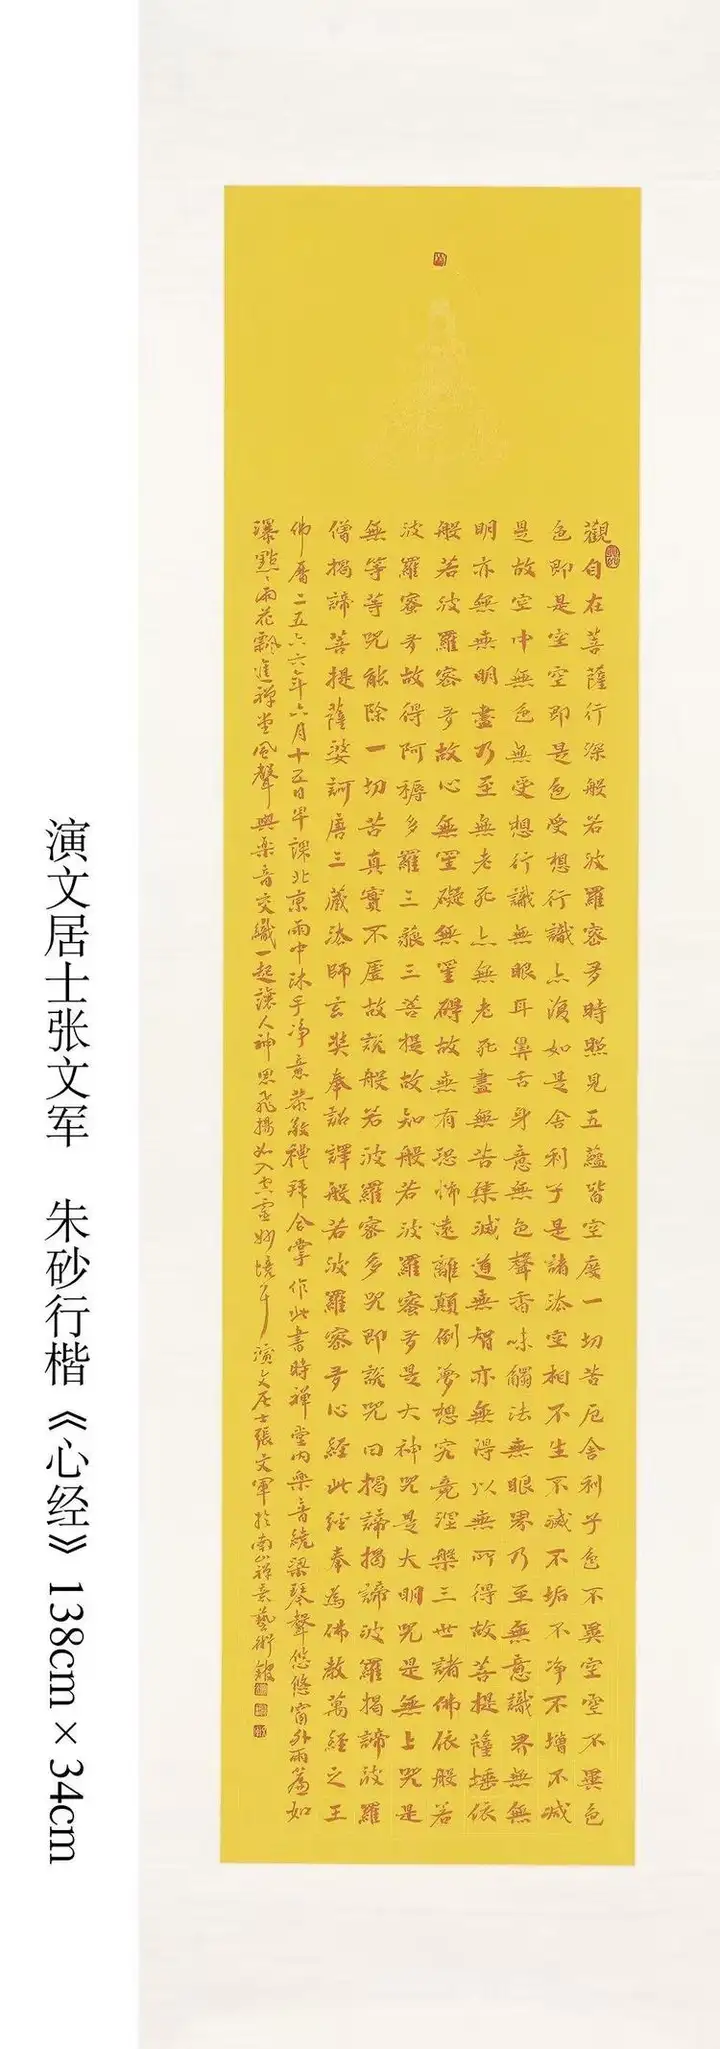 觀自在菩薩行深般若波羅密多時照見五蘊皆空度一切苦厄舍利子色不異空空不異色
色即是空空即是色受想行識亦復如是舍利子是諸法空相不生不滅不垢不净不增不減
是故空中無色無受想行識無眼耳鼻舌身意無色聲香味觸法無眼界乃至無意識界無無
明亦無無明盡乃至無老死亦無老死盡無苦集滅道無智亦無得以無所得故菩提薩埵依
般若波羅密多故心無罣礙無罣碍故無有恐怖遠離顛倒夢想究竟涅槃三世諸佛依般若
波羅密多故得阿耨多羅三藐三菩提故知般若波羅蜜多是大神咒是大明咒是無上咒是
無等等咒能除一切苦真實不虛故說般若波羅蜜多咒即說咒曰揭諦揭諦波羅揭諦波羅
僧揭諦菩提薩婆訶唐三藏法師玄奘奉詔譯般若波羅蜜多心經此經奉為佛教萬經之王
佛曆二五六六年六月十五日早課北京雨中沐手净意恭敬禮拜合掌作此書時禅堂内樂音繞梁琴聲悠悠窗外雨簾如
瀑點點雨花飄進禅堂風聲與楽音交織一起讓人神思飛揚如入空靈妙境耳 演文居士張文軍於南山禅意藝術館
演文居士张文军 朱砂行楷《心经》138cm×34cm